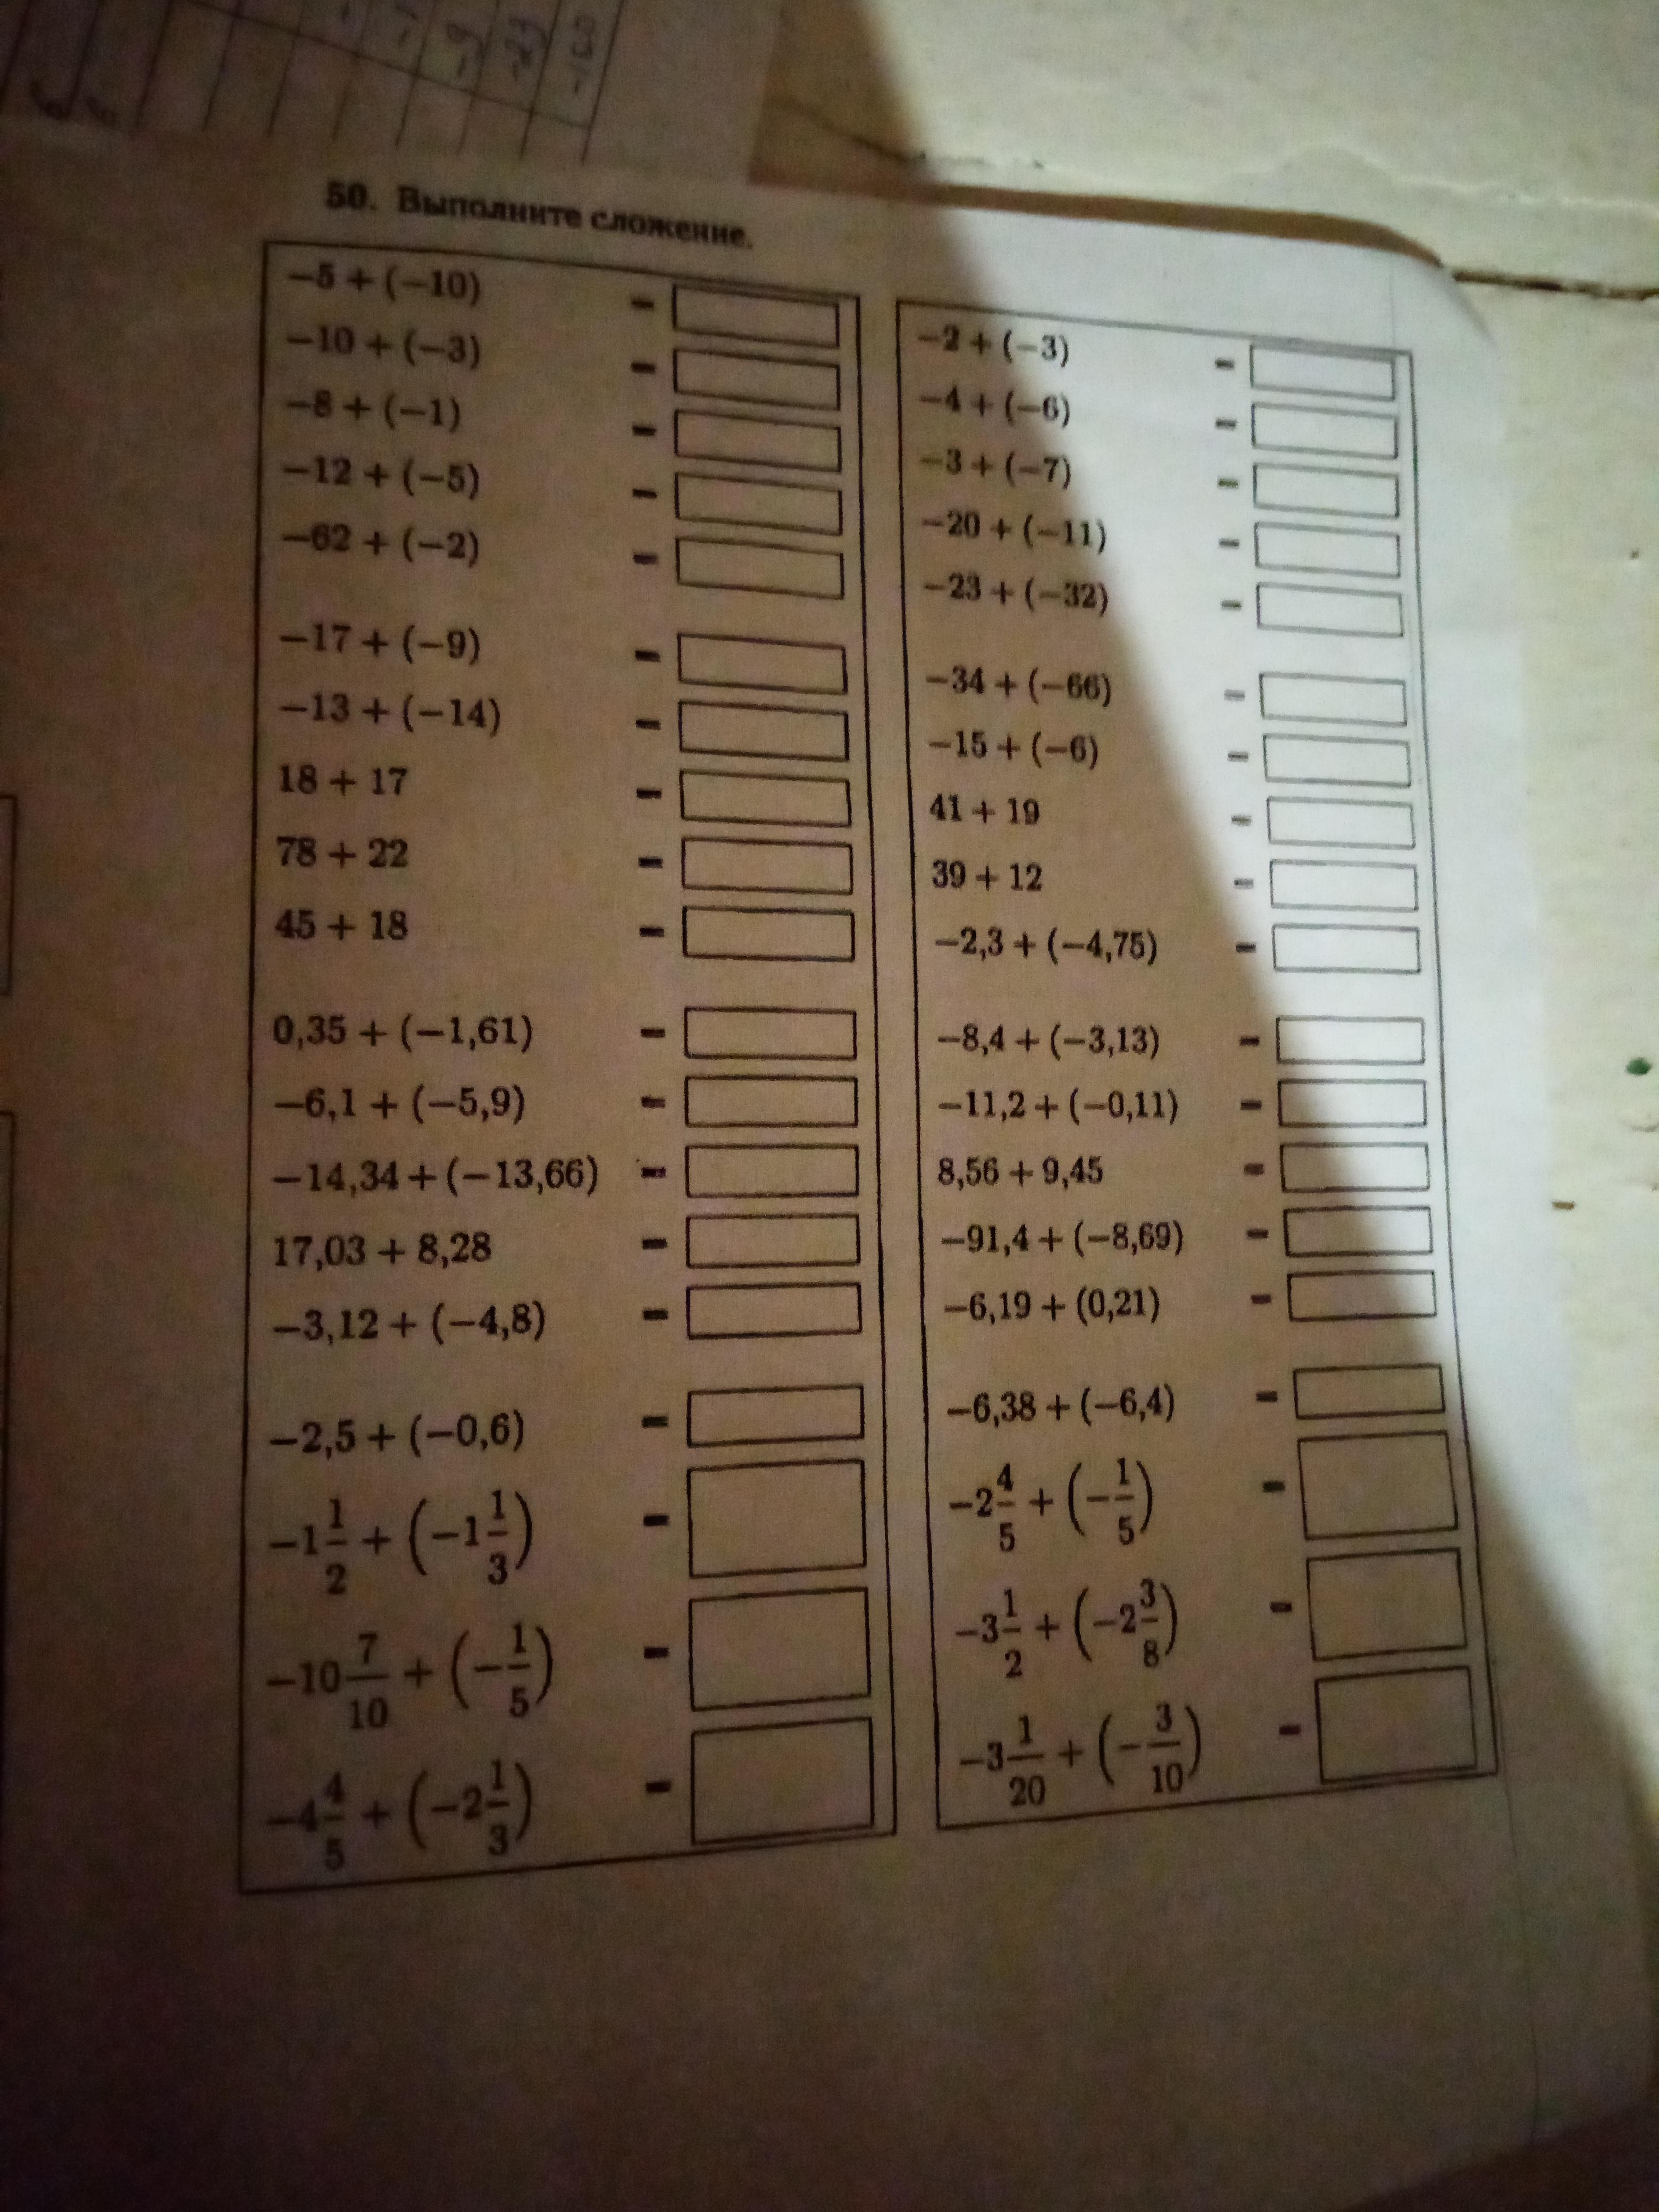 50. Выполните сложение.
−5 + (−10) =
−10 + (−3) =
−8 + (−1) =
−12 + (−5) =
−62 + (−2) =
−17 + (−9) =
−13 + (−14) =
18 + 17 =
78 + 22 =
45 + 18 =
0,35 + (−1,61) =
−6,1 + (−5,9) =
−14,34 + (−13,66) =
17,03 + 8,28 =
−3,12 + (−4,8) =
−2,5 + (−0,6) =
−1 1/2 + (−1 1/3) =
−10 7/10 + (−1/5) =
−4 4/5 + (−2 1/3) =
−2 + (−3) =
−4 + (−6) =
−3 + (−7) =
−20 + (−11) =
−23 + (−32) =
−34 + (−66) =
−15 + (−6) =
41 + 19 =
39 + 12 =
−2,3 + (−4,75) =
−8,4 + (−3,13) =
−11,2 + (−0,11) =
8,56 + 9,45 =
−91,4 + (−8,69) =
−6,19 + (0,21) =
−6,38 + (−6,4) =
−2 4/5 + (−1/5) =
−3 1/2 + (−2 3/8) =
−3 1/20 + (−3/10) =